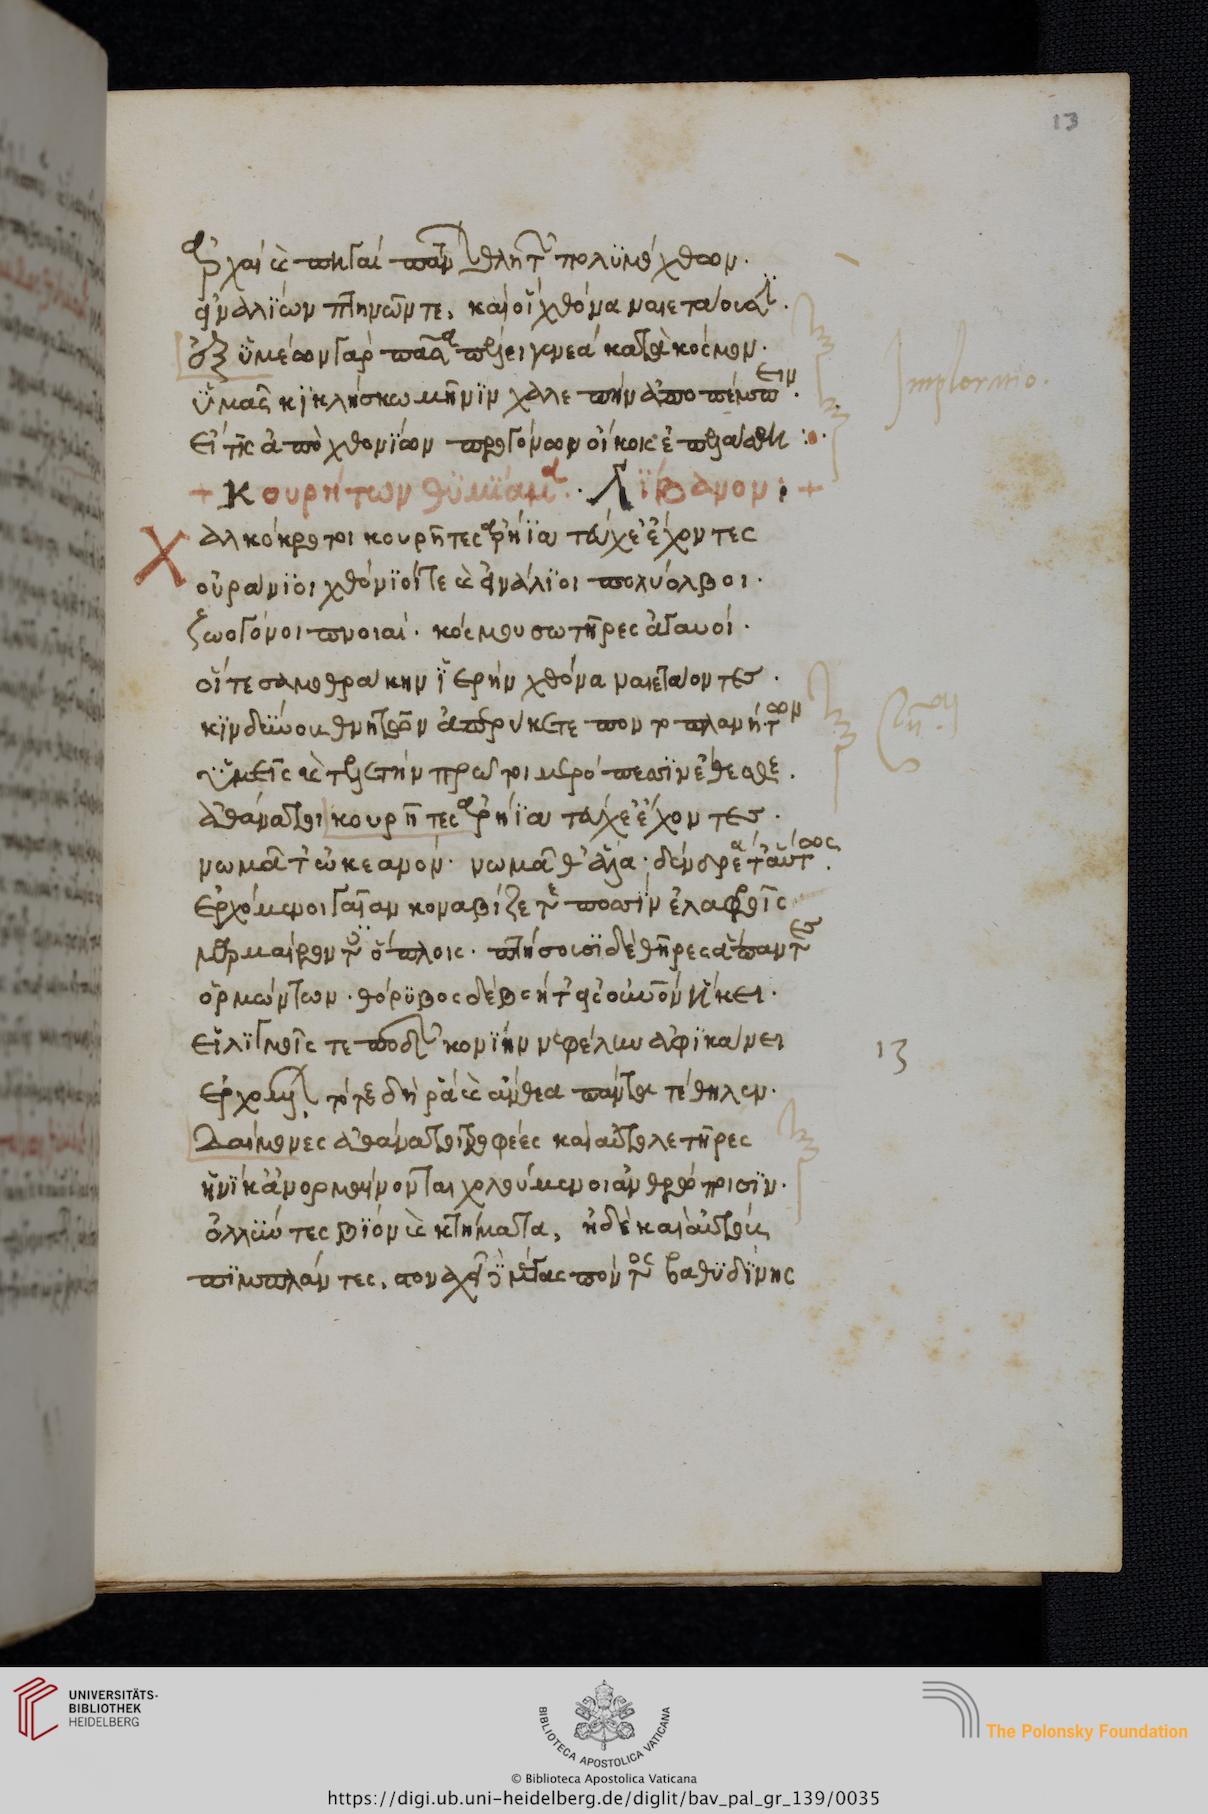 13
ἀρχαὶ καὶ πηγαὶ πάντων θνητῶν πολυμόχθων.
εἰναλίων πτηνῶν τε, καὶ οἳ χθόνα ναιετάουσιν.
ἐξ ὑμέων γὰρ πᾶσα πέλει γενεὰ κατὰ κόσμον.
ὑμᾶς κικλήσκω μῆνιν χαλεπὴν ἀποπέμπειν.
εἴ τις ἀπὸ χθονίων προγόνων οἴκοις ἐπελάσθη :·
Implormio.
+ Κουρήτων θυμίαμα. Λίβανον: +
Χαλκόκροτοι κουρῆτες ἀρήϊα τεύχε' ἔχοντες
οὐράνιοι χθόνιοί τε καὶ εἰνάλιοι πολύολβοι.
ζωογόνοι πνοιαί. κόσμου σωτῆρες ἀγαυοί.
οἵτε σαμοθράκην ἱερὴν χθόνα ναιετάοντες.
κινδύνους θνητῶν ἀπερύκετε πόντῳ πλανήτων
ὑμεῖς καὶ τελετὴν πρῶτοι μερόπεσσιν ἔθεσθε.
ἀθάνατοι κουρῆτες ἀρήϊα τεύχε' ἔχοντες.
νωμᾶτ' ὠκεανόν. νωμᾶθ' ἅλα. δένδρεά θ' αὕτως.
ἐρχόμενοι γαῖαν κοναβίζετε ποσσὶν ἐλαφροῖς
μαρμαίροντες ὅπλοις. πτήσσουσι δὲ θῆρες ἅπαντες
ὁρμώντων. θόρυβος δὲ βοή τ' εἰς οὐρανὸν ἥκει.
εἱλιγμοῖς τε ποδῶν κονίη νεφέλας ἀφικάνει
13
ἐρχομένων, τότε δή ῥα καὶ ἄνθεα πάντα τέθηλεν.
Δαίμονες ἀθάνατοι τροφέες καὶ αὖτ' ὀλετῆρες
ἡνίκ' ἂν ὁρμαίνονται χολούμενοι ἀνθρώποισιν.
ὀλλύντες βίον καὶ κτήματα, ἠδὲ καὶ αὐτούς
πιμπλάντες, στοναχεῖ δὲ μέγας πόντος βαθυδίνης
UNIVERSITÄTS-
BIBLIOTHEK
HEIDELBERG
BIBLIOTECA APOSTOLICA VATICANA
The Polonsky Foundation
© Biblioteca Apostolica Vaticana
https://digi.ub.uni-heidelberg.de/diglit/bav_pal_gr_139/0035